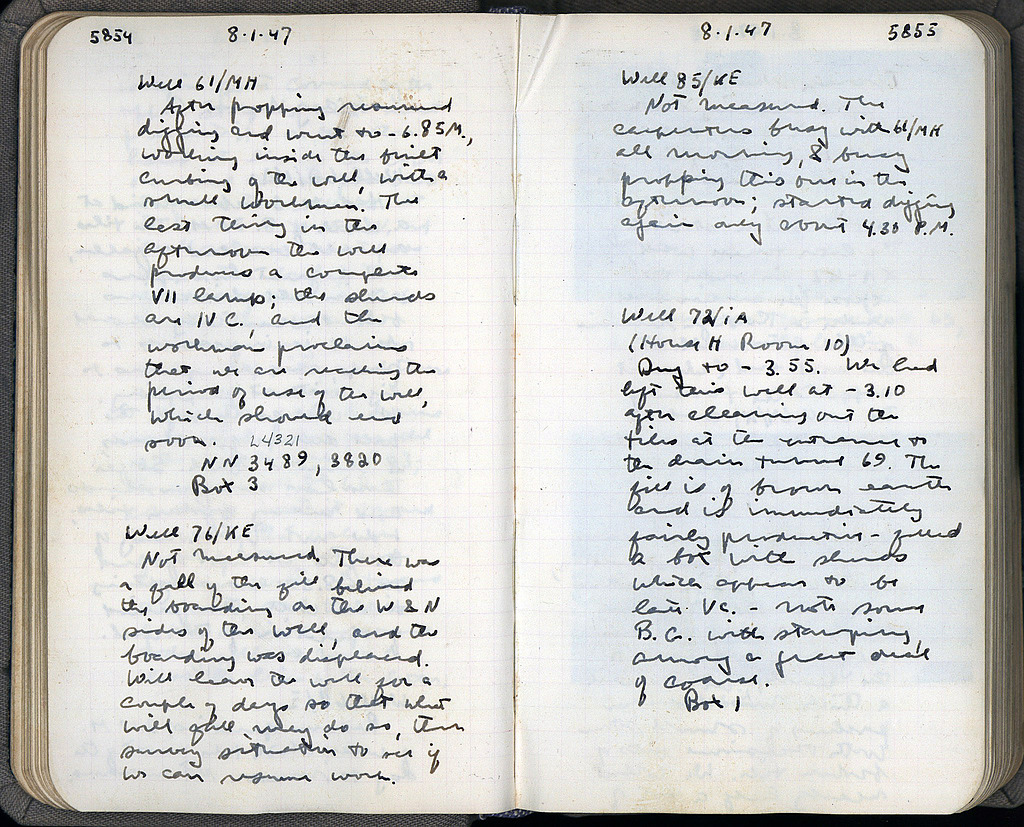 5854 8.1.47
Well 61/MH
After propping resumed
digging and went to -6.85M.,
working inside the built
curbing of the well, with a
small workman. The
last thing in the
afternoon the well
produces a complete
VII lamp; the sherds
are IV C., and the
workman proclaims
that we are reaching the
period of use of the well,
which should end
soon. L4321
NN 3489, 3820
Box 3
Well 76/KE
Not measured. There was
a fall of the fill behind
the boarding on the W & N
sides of the well, and the
boarding was displaced.
Will leave the well for a
couple of days so that what
will fall may do so, then
survey situation to see if
we can resume work.
8.1.47 5855
Well 85/KE
Not measured. The
carpenters busy with 61/MH
all morning, & busy
propping this one in the
afternoon; started digging
again only about 4.30 P.M.
Well 72/iA
(House H Room 10)
Dug to - 3.55. We had
left this well at - 3.10
after cleaning out the
tiles at the entrance to
the drain tunnel 69. The
fill is of brown earth
and is immediately
fairly productive - filled
a box with sherds
which appear to be
late Vc. - note some
B.G. with stamping,
among a great deal
of coarse.
Box 1